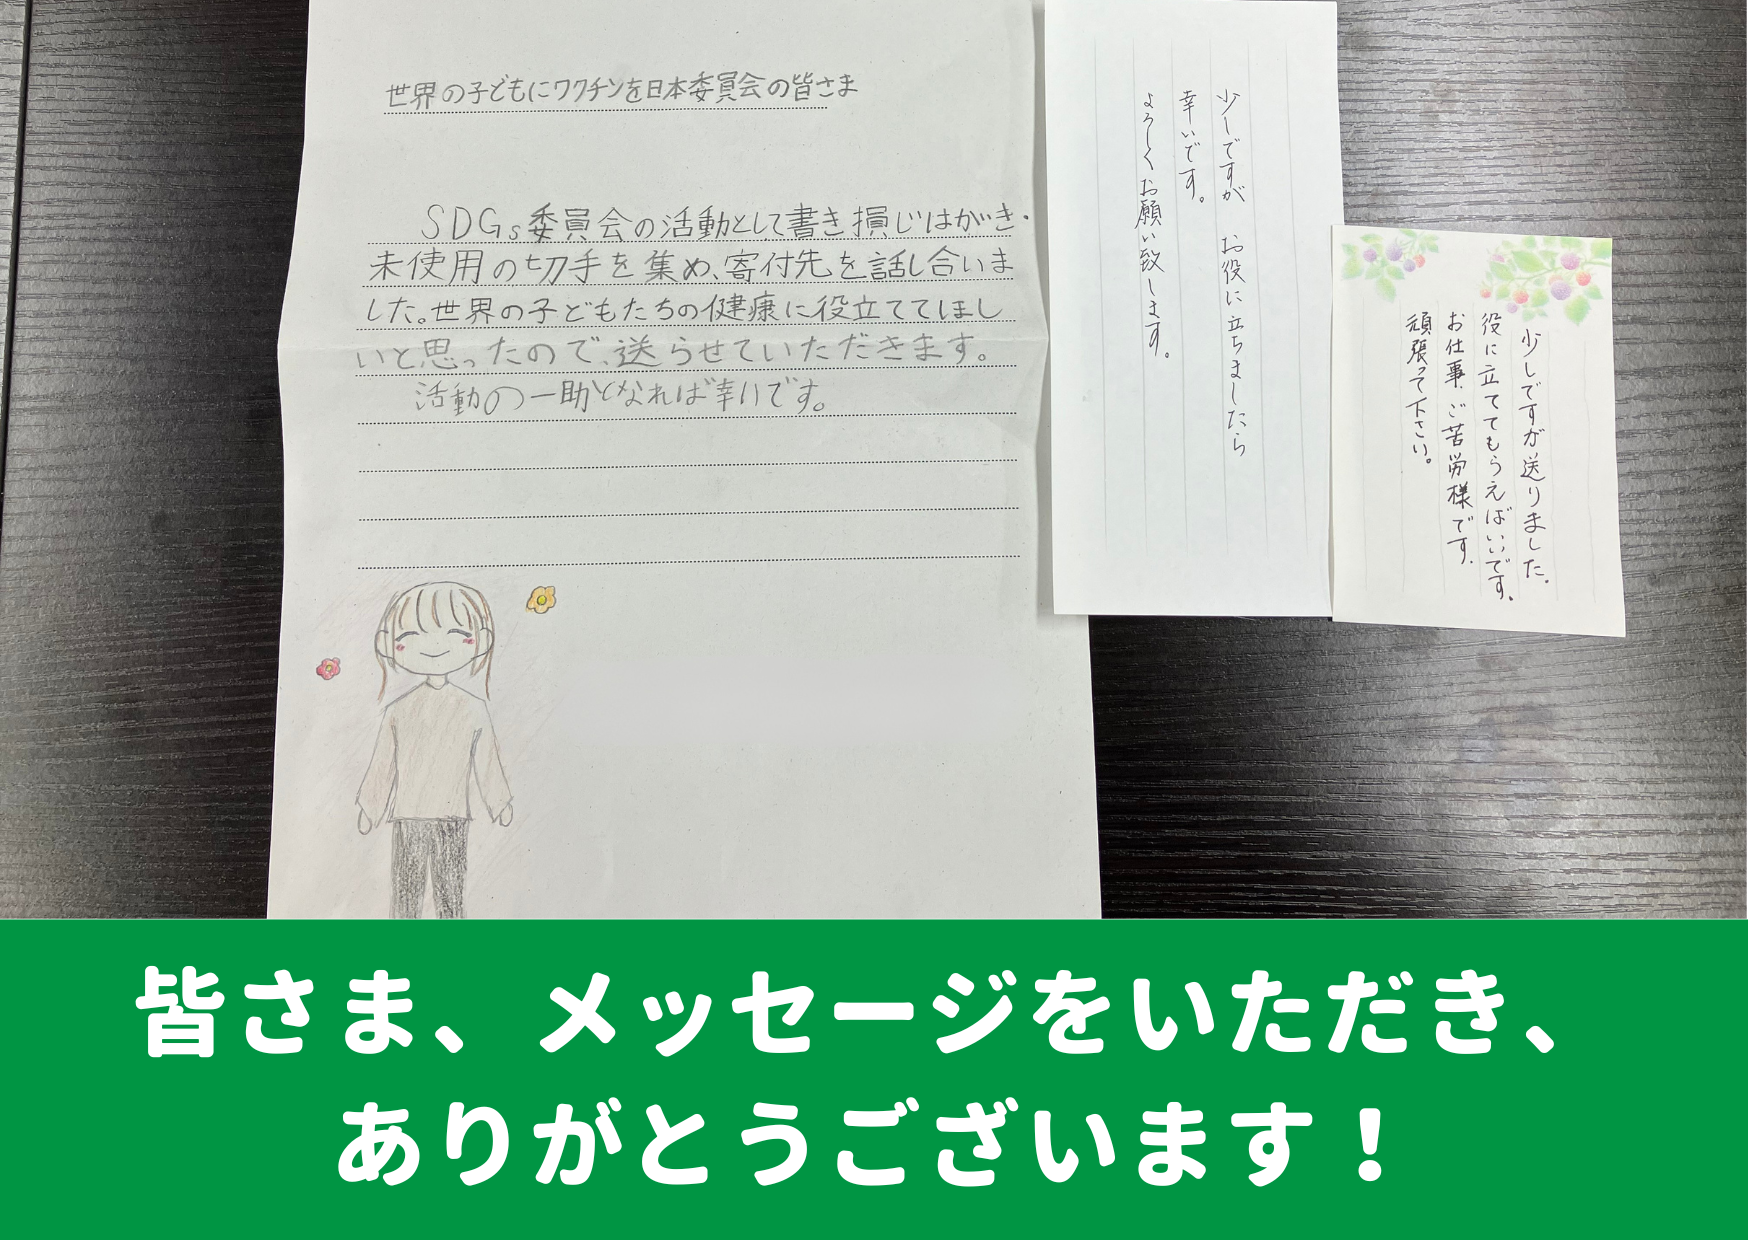 世界の子どもにワクチンを日本委員会の皆さま
SDGs委員会の活動として書き損じはがき・
未使用の切手を集め、寄付先を話し合いま
した。世界の子どもたちの健康に役立ててほし
いと思ったので、送らせていただきます。
活動の一助となれば幸いです。
少しですが お役に立ちましたら
幸いです。
よろしくお願い致します。
少しですが送りました。
役に立ててもらえばいいです。
お仕事、ご苦労様です。
頑張って下さい。
皆さま、メッセージをいただき、
ありがとうございます！